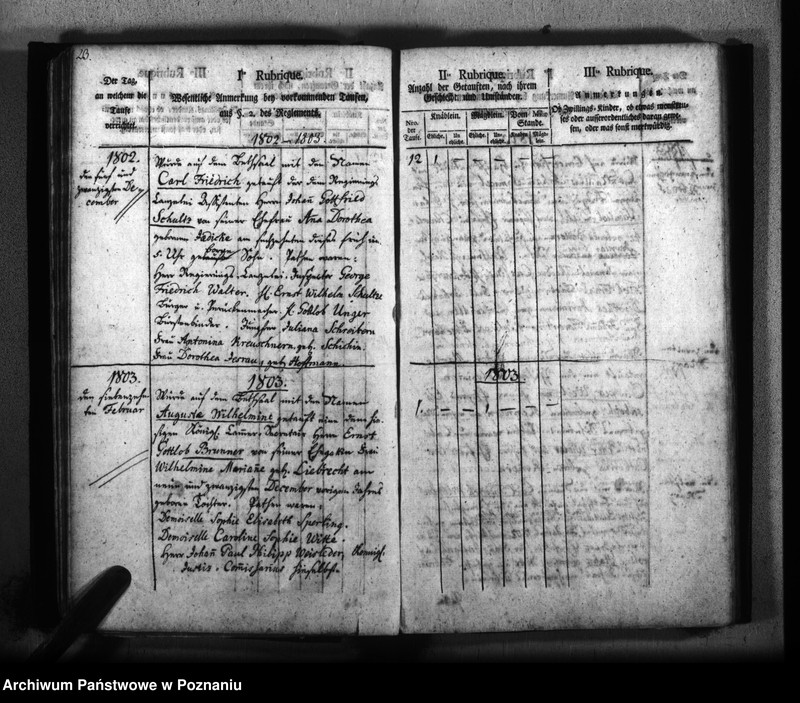 23.
Der Tag,
an welchem die
Taufe
verrichtet.
Iᵉ Rubrique.
Wesentliche Anmerkung bey vorkommenden Taufen,
aus §. 2. des Reglements.
1802 - 1803.
1802.
den fünf und
zwanzigsten De-
cember
Wurde auf dem Bethsaal mit den Namen
Carl Friedrich getauft der dem Regierungs
Canzelei Assistenten Herrn Johañ Gottfried
Schultz von seiner Ehefrau Aña Dorothea
gebornen am funfzehnten dieses früh um
5. Uhr geborne Sohn. Pathen waren:
Herr Regierungs-Canzelei-Inspector George
Friedrich Walter. H. Ernst Wilhelm Schultze
Bürger u. H. Gottlob Unger
Jungfer Juliana Schreibern
Frau Antonina geb.
Frau Dorothea geb. Hoffmann
1803.
den siebenzehn
ten Februar
1803.
Wurde auf dem Bethsaal mit den Namen
Augusta Wilhelmine getauft eine dem hie-
sigen Königl. Secretair Herrn Ernst
Gottlob Brunner von seiner Ehegattin Frau
Wilhelmine Mariañe geb. Liebrecht am
neun und zwanzigsten December vorigen Jahres
geborne Tochter. Pathen waren:
Demoiselle Sophie Elisabeth Sperling.
Demoiselle Caroline Sophie Witke.
Herr Johañ Paul Philipp Königl.
Justiz-Comissarius hieselbst
IIᵗᵉ Rubrique.
Anzahl der Getauften, nach ihrem
Geschlecht und Umständen.
Nro.
der
Taufe.
Knäblein.
Mägdlein.
Vom Stande.
Eheliche.
Un
eheliche.
Eheliche.
Un-
eheliche.
Knäblein.
Mägdlein.
12 1 - - - - -
1803
1. - - 1 - - -
IIIᵗᵉ Rubrique.
Anmerkungen
Ob Zwillings-Kinder, ob etwas monströ-
ses oder ausserordentliches daran gewe-
sen, oder was sonst merkwürdig.
Archiwum Państwowe w Poznaniu